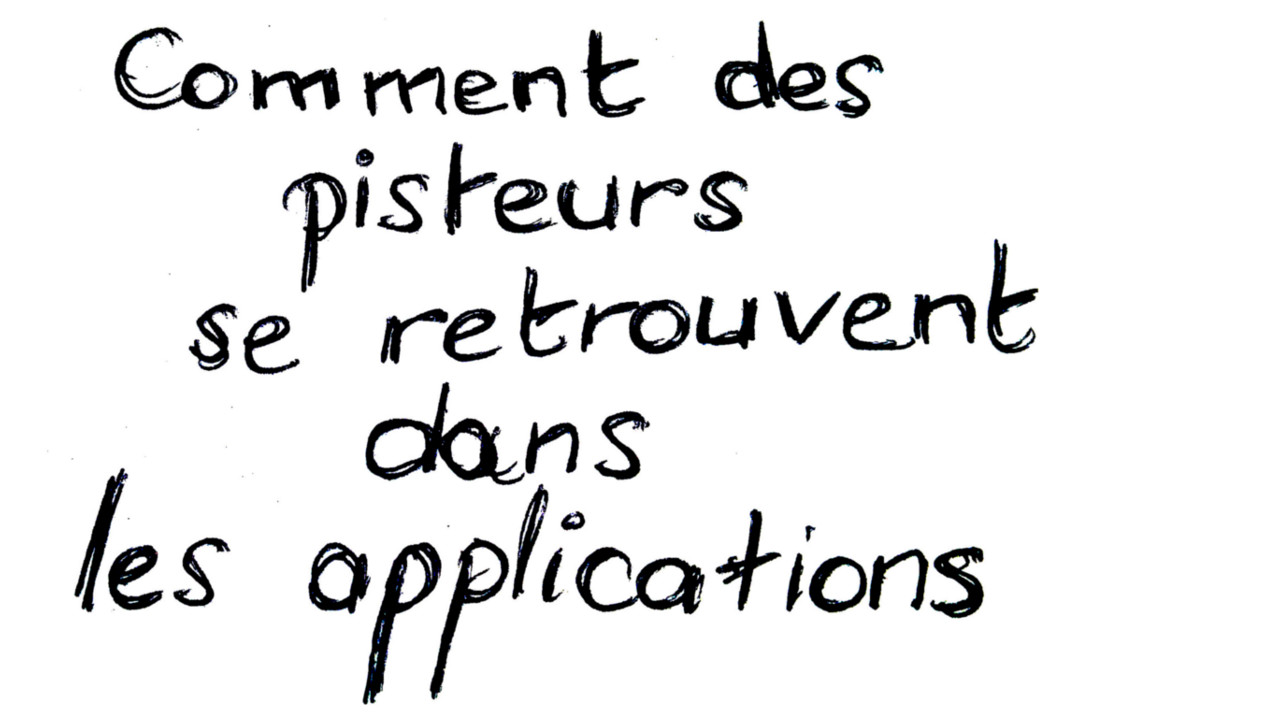 Comment des
pisteurs
se retrouvent
dans
les applications